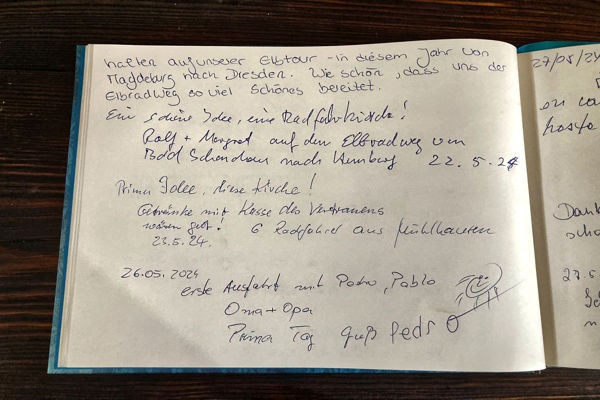 halten auf unserer Elbtour - in diesem Jahr von
Magdeburg nach Dresden. Wie schön, dass uns der
Elbradweg so viel Schönes bereitet.
Ein schöne Idee, eine Radfahrkirche!
Rolf + Margret auf dem Elbradweg von
Bad Schandau nach Hamburg 22.5.24
Prima Idee, diese Kirche!
Getränke mit Kasse des Vertrauens
wären gut! 6 Radfahrer aus Mühlhausen
23.5.24.
26.05.2024
erste Ausfahrt mit Pedro, Pablo
Oma + Opa
Prima Tag Gruß Pedro
27/05/24
Dank
27.5